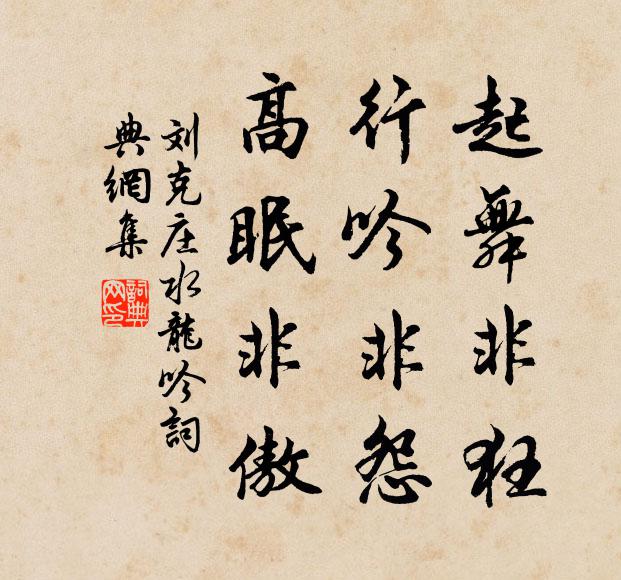 起舞非狂
行吟非怨
高眠非傲
刘克庄水龍吟詞
典網集
詞典
网印